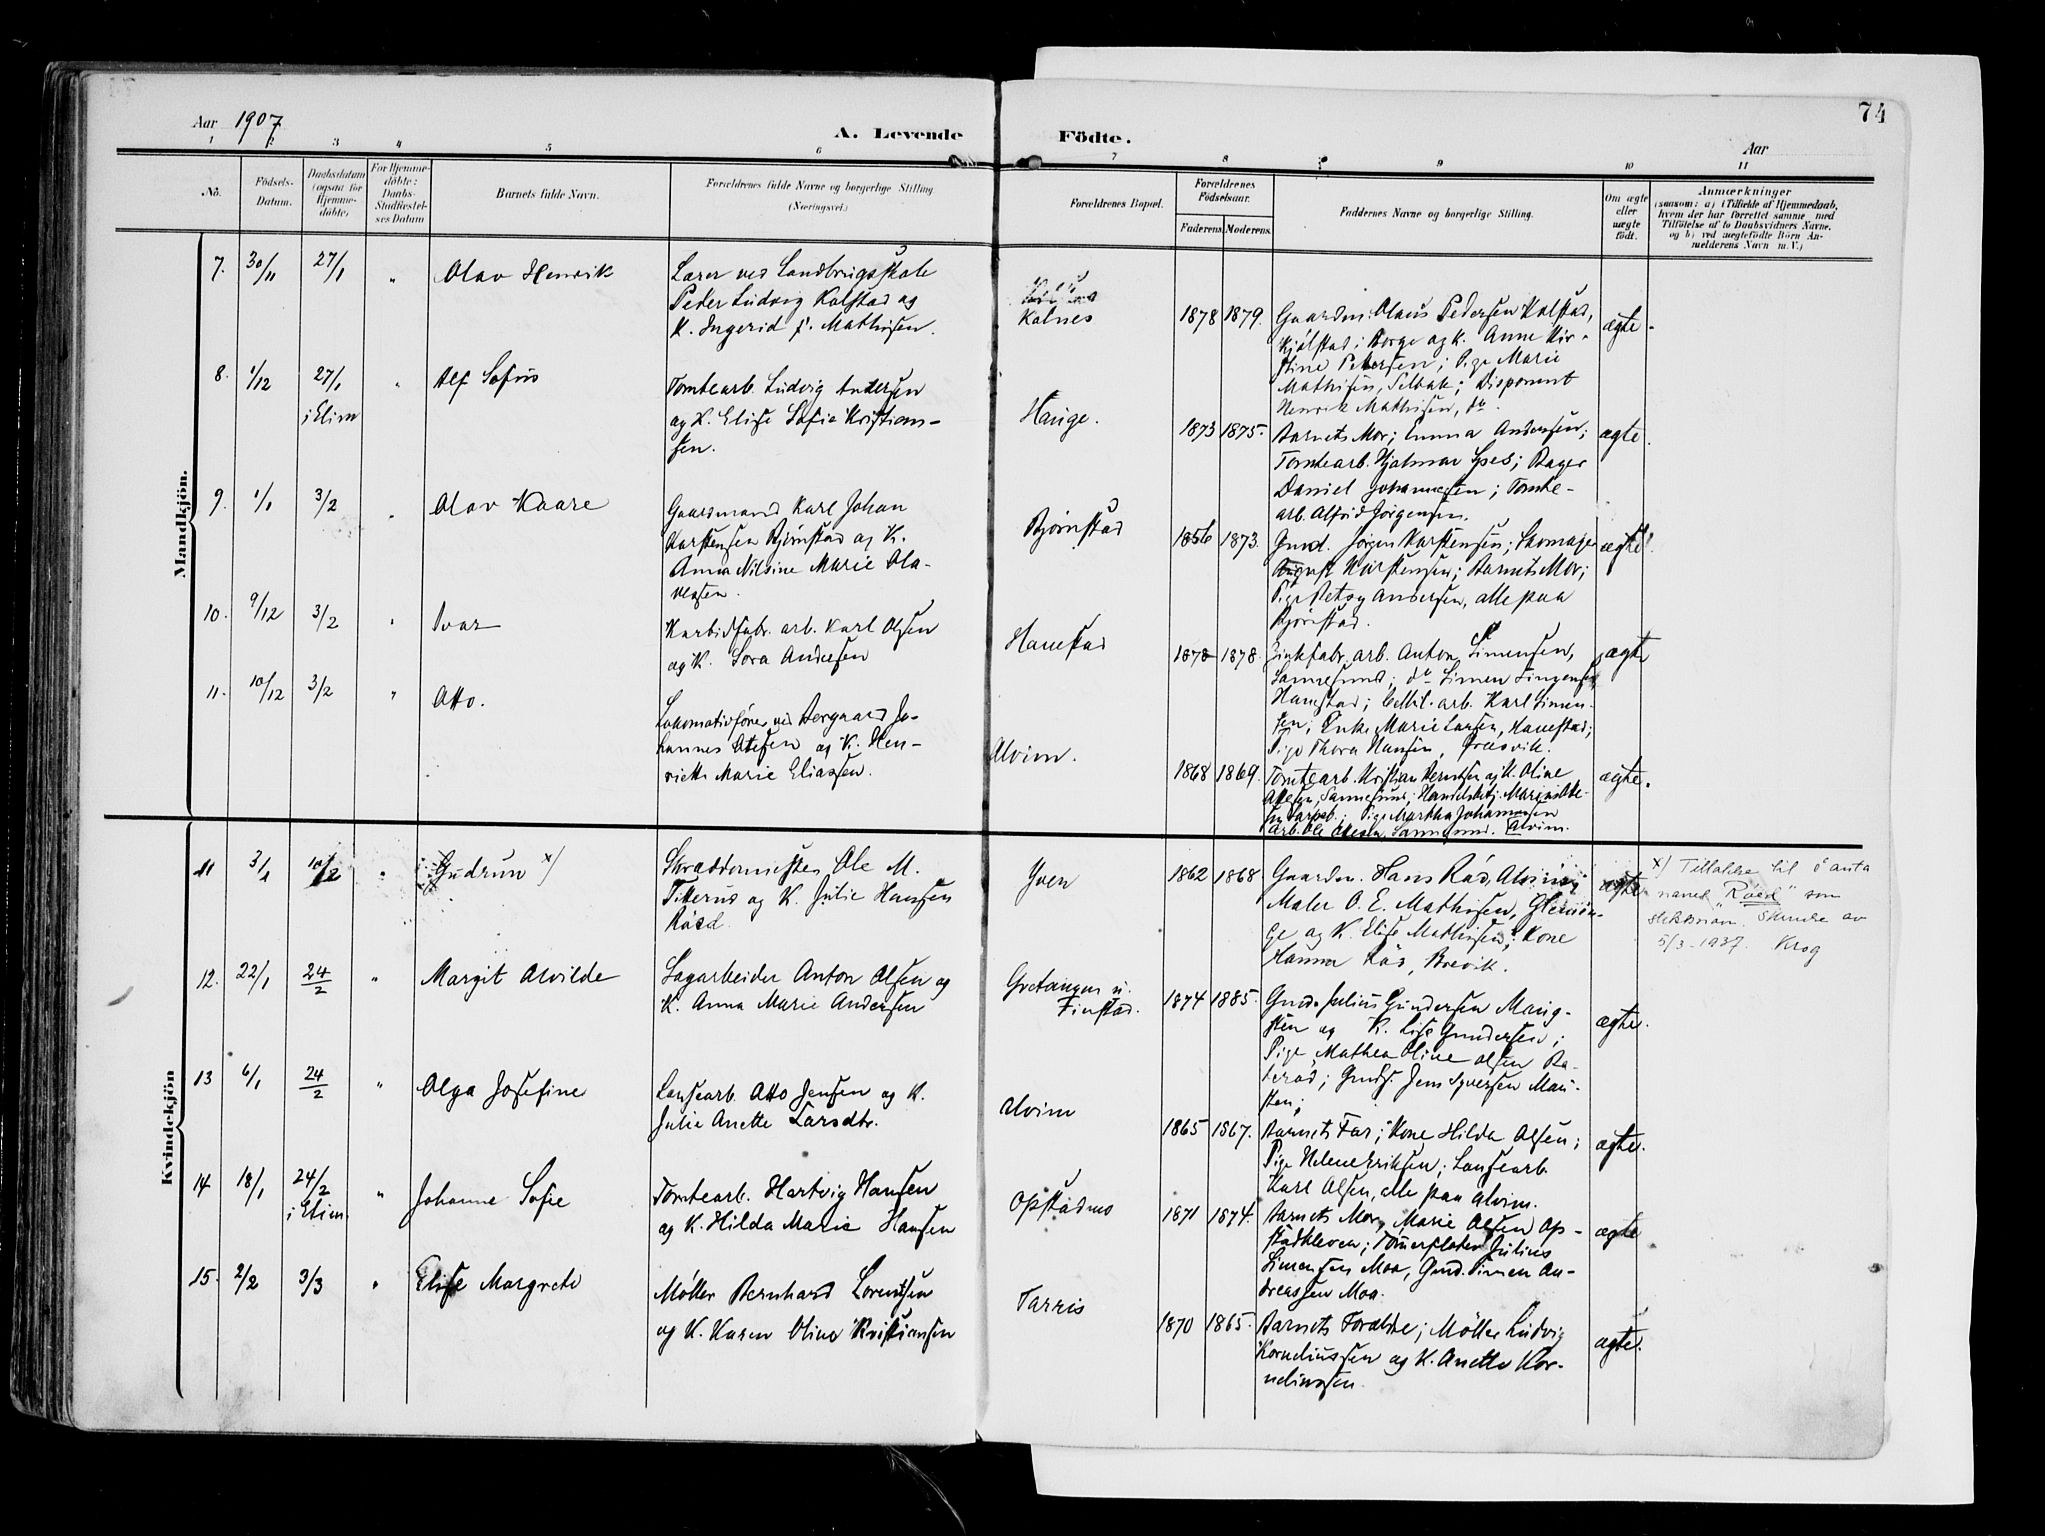 74
Aar 1907
A. Levende Födte.
Aar
1 2 3 4 5 6 7 8 9 10 11
No.
Födsels-
Datum.
Daabsdatum
(ogsaa for
Hjemme-
döbte)
For Hjemme-
döbte:
Daabs-
Stadfæstel-
ses Datum
Barnets fulde Navn.
Forældrenes fulde Navne og borgerlige Stilling
(Næringsvei.)
Forældrenes Bopæl.
Forældrenes
Födselsaar.
Faderens Moderens.
Faddernes Navne og borgerlige Stilling.
Om ægte
eller
uægte
födt.
Anmærkninger
(saasom: a) i Tilfælde af Hjemmedaab,
hvem der har forrettet samme, med
Tilföielse af to Daabsvidners Navne.
og b) ved uægtefödte Börn An-
melderens Navn m. V.)
Mandkjön.
7. 30/11 27/1 " Olav Henrik
Lærer ved Landbrugsskole
Peder Ludvig Kolstad og
K. Ingerid f. Mathisen.
Kalnes
1878 1879.
Gaardm. Olaus Pedersen Kolstad,
Kjølstad i Borge og K. Anne Kir-
stine Petersen; Pige Marie
Mathisen, Selbak; Disponent
Henrik Mathisen, do.
ægte.
8. 1/12 27/1 i Elim " Alf Sofus
Tomtearb. Ludvig Andersen
og K. Elise Sofie Kristian-
sen.
Hauge.
1873 1875.
Barnets Mor; Emma Andersen;
Tomtearb. Hjalmar Spes; Bager
Daniel Johannesen; Tomte-
arb. Alfrid Jørgensen.
ægte.
9. 1/1 3/2 " Olav Kaare
Gaardmand Karl Johan
Karstensen Bjørnstad og K.
Anna Nilsine Marie Ola-
vesen.
Bjørnstad
1856 1873.
Gmd. Jørgen Karstensen; Skomager
August Karstensen; Barnets Mor;
Pige Betsy Andersen, alle paa
Bjørnstad.
ægte.
10. 9/12 3/2 " Ivar
Karbidfabr. arb. Karl Olsen
og K. Tora Andersen
Hanestad
1878 1878
Zinkfabr. arb. Anton Simensen,
Sannesund; do Simen Simensen
Hanestad; Cellul. arb. Karl Simen-
sen; Enke Marie Larsen, Hanestad;
Pige Thora Hansen, Græsvik.
ægte
11. 10/12 3/2 " Otto.
Lokomotivfører ved Borgaard Jo-
hannes Ottesen og K. Hen-
riette Marie Eliassen.
Alvim.
1868 1869.
Tomtearb. Kristian Berntsen og K. Oline
Ottesen, Sannesund; Handelsbetj. Marius Otte-
sen Sarpsb.; Pige Martha Johannesen
Arb. Ole Olesen, Sannesund. Alvim.
ægte.
Kvindekjön
11 3/1 10/2 " Gudrun x)
Skræddermester Ole M.
Titterud og K. Julie Hansen
Røsd
Yven
1862 1868.
Gaardm. Hans Röd, Alvim;
Maler O. E. Mathisen, Glemmin-
ge og K. Elise Mathisen; Kone
Hanna Röd, Brevik.
ægte
x) Tillatelse til å anta
navnet "Røed" som
slektsnavn. Skrivelse av
5/3-1937. Krog
12. 22/1 24/2 " Margit Alvilde
Sagarbeider Anton Olsen og
K. Anna Marie Andersen
Gretangen u.
Finstad.
1874 1885.
Gmd. Julius Gundersen Maug-
sten og K. Lise Gundersen;
Pige Mathea Oline Olsen Ra-
kerød; Gmds. Jens Syversen Mau-
sten;
ægte.
13 6/1 24/2 " Olga Josefine
Lansearb. Otto Jensen og K.
Julie Anette Larsdtr.
Alvim
1865 1867.
Barnets Far; Kone Hilda Olsen;
Pige Helene Eriksen; Lansearb.
Karl Olsen, alle paa Alvim.
ægte.
14 18/1 24/2 i Elim. " Johanne Sofie
Tomtearb. Hartvig Hansen
og K. Hilda Marie Hansen
Opstadmo
1871 1874.
Barnets Mor, Marie Olsen Op-
stadkleven; Tømerfløter Julius
Simensen Moa, Gmd. Simen An-
dreassen Moa.
ægte
15. 2/2 3/3 " Elise Margrete
Møller Bernhard Lorentsen
og K. Karen Olina Kristiansen
Tarris
1870 1865.
Barnets Forældre; Møller Ludvig
Korneliussen og K. Anette Kor-
neliussen.
ægte.